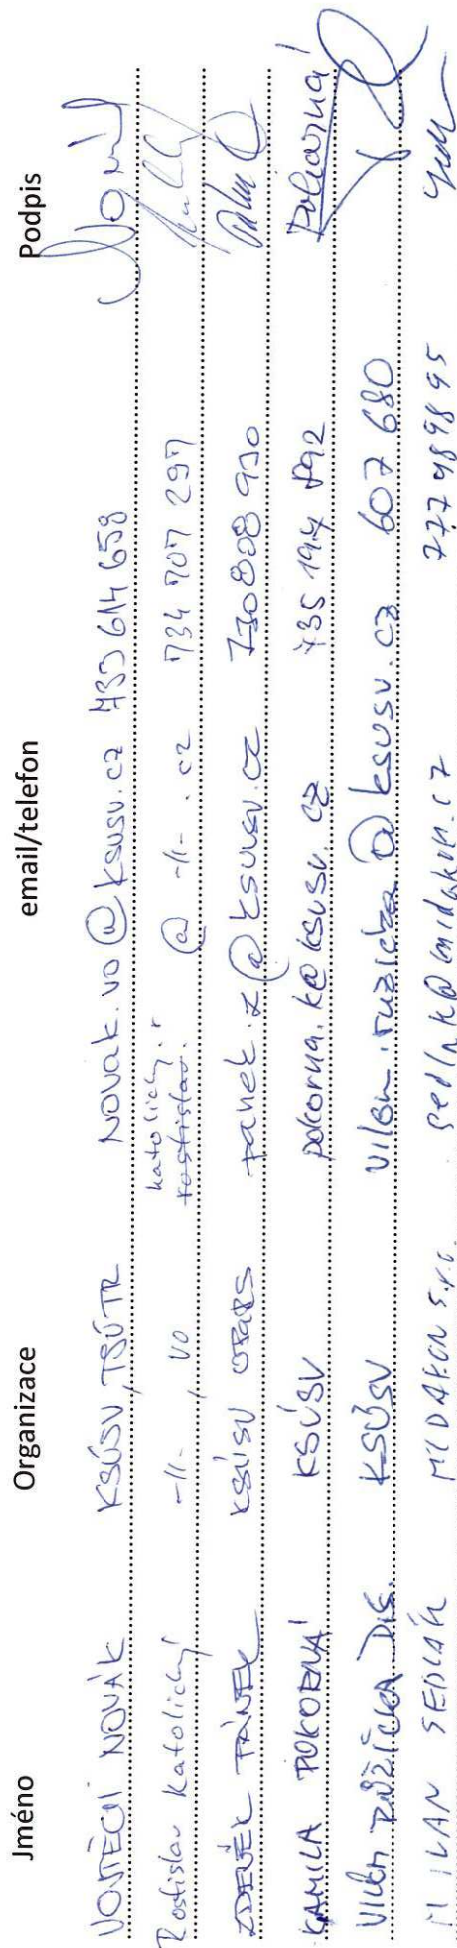 Jméno Organizace email/telefon Podpis
VOJTĚCH NOVÁK KSÚSV, TSÚTR novak.vo@ksusv.cz 733 614 658
Rostislav Katolický -//-, VO katolicky.r @ -//- .cz 734 707 297
rostislav.
ZDENĚK PÁNEK KSÚSV panek.z@ksusv.cz 730 808 930
KAMILA POKORNÁ KSÚSV pokorna.k@ksusv.cz 735 194 892 Pokorná
Vilém RŮŽIČKA DiS. KSÚSV vilem.ruzicka@ksusv.cz 607 680
MILAN SEDLÁK MIDAKON s.r.o. sedlak@midakon.cz 777489895